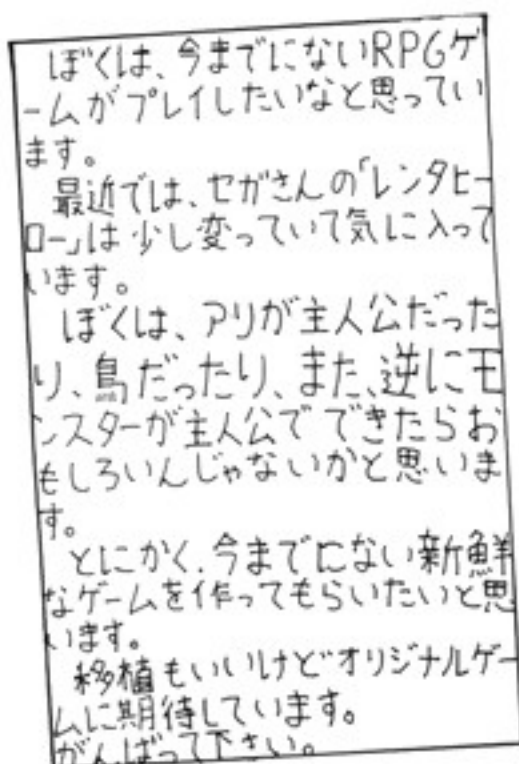 ぼくは、今までにないRPGゲ
ームがプレイしたいなと思ってい
ます。
最近では、セガさんの「レンタヒー
ロー」は少し変っていて気に入って
います。
ぼくは、アリが主人公だった
り、鳥だったり、また、逆にモ
ンスターが主人公でできたらお
もしろいんじゃないかと思いま
す。
とにかく、今までにない新鮮
なゲームを作ってもらいたいと思
います。
移植もいいけどオリジナルゲー
ムに期待しています。
がんばって下さい。